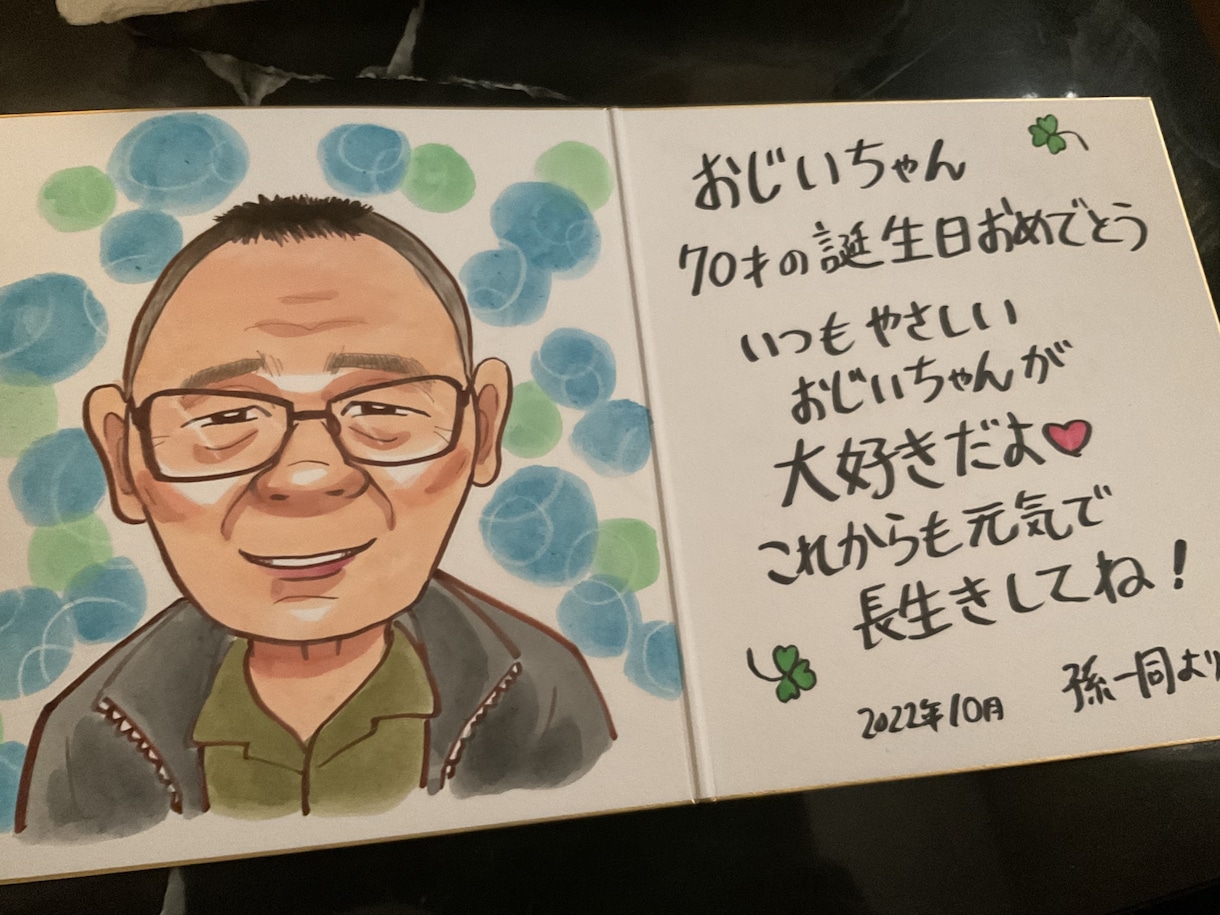 おじいちゃん
70才の誕生日おめでとう
いつもやさしい
おじいちゃんが
大好きだよ
これからも元気で
長生きしてね！
孫一同より
2022年10月